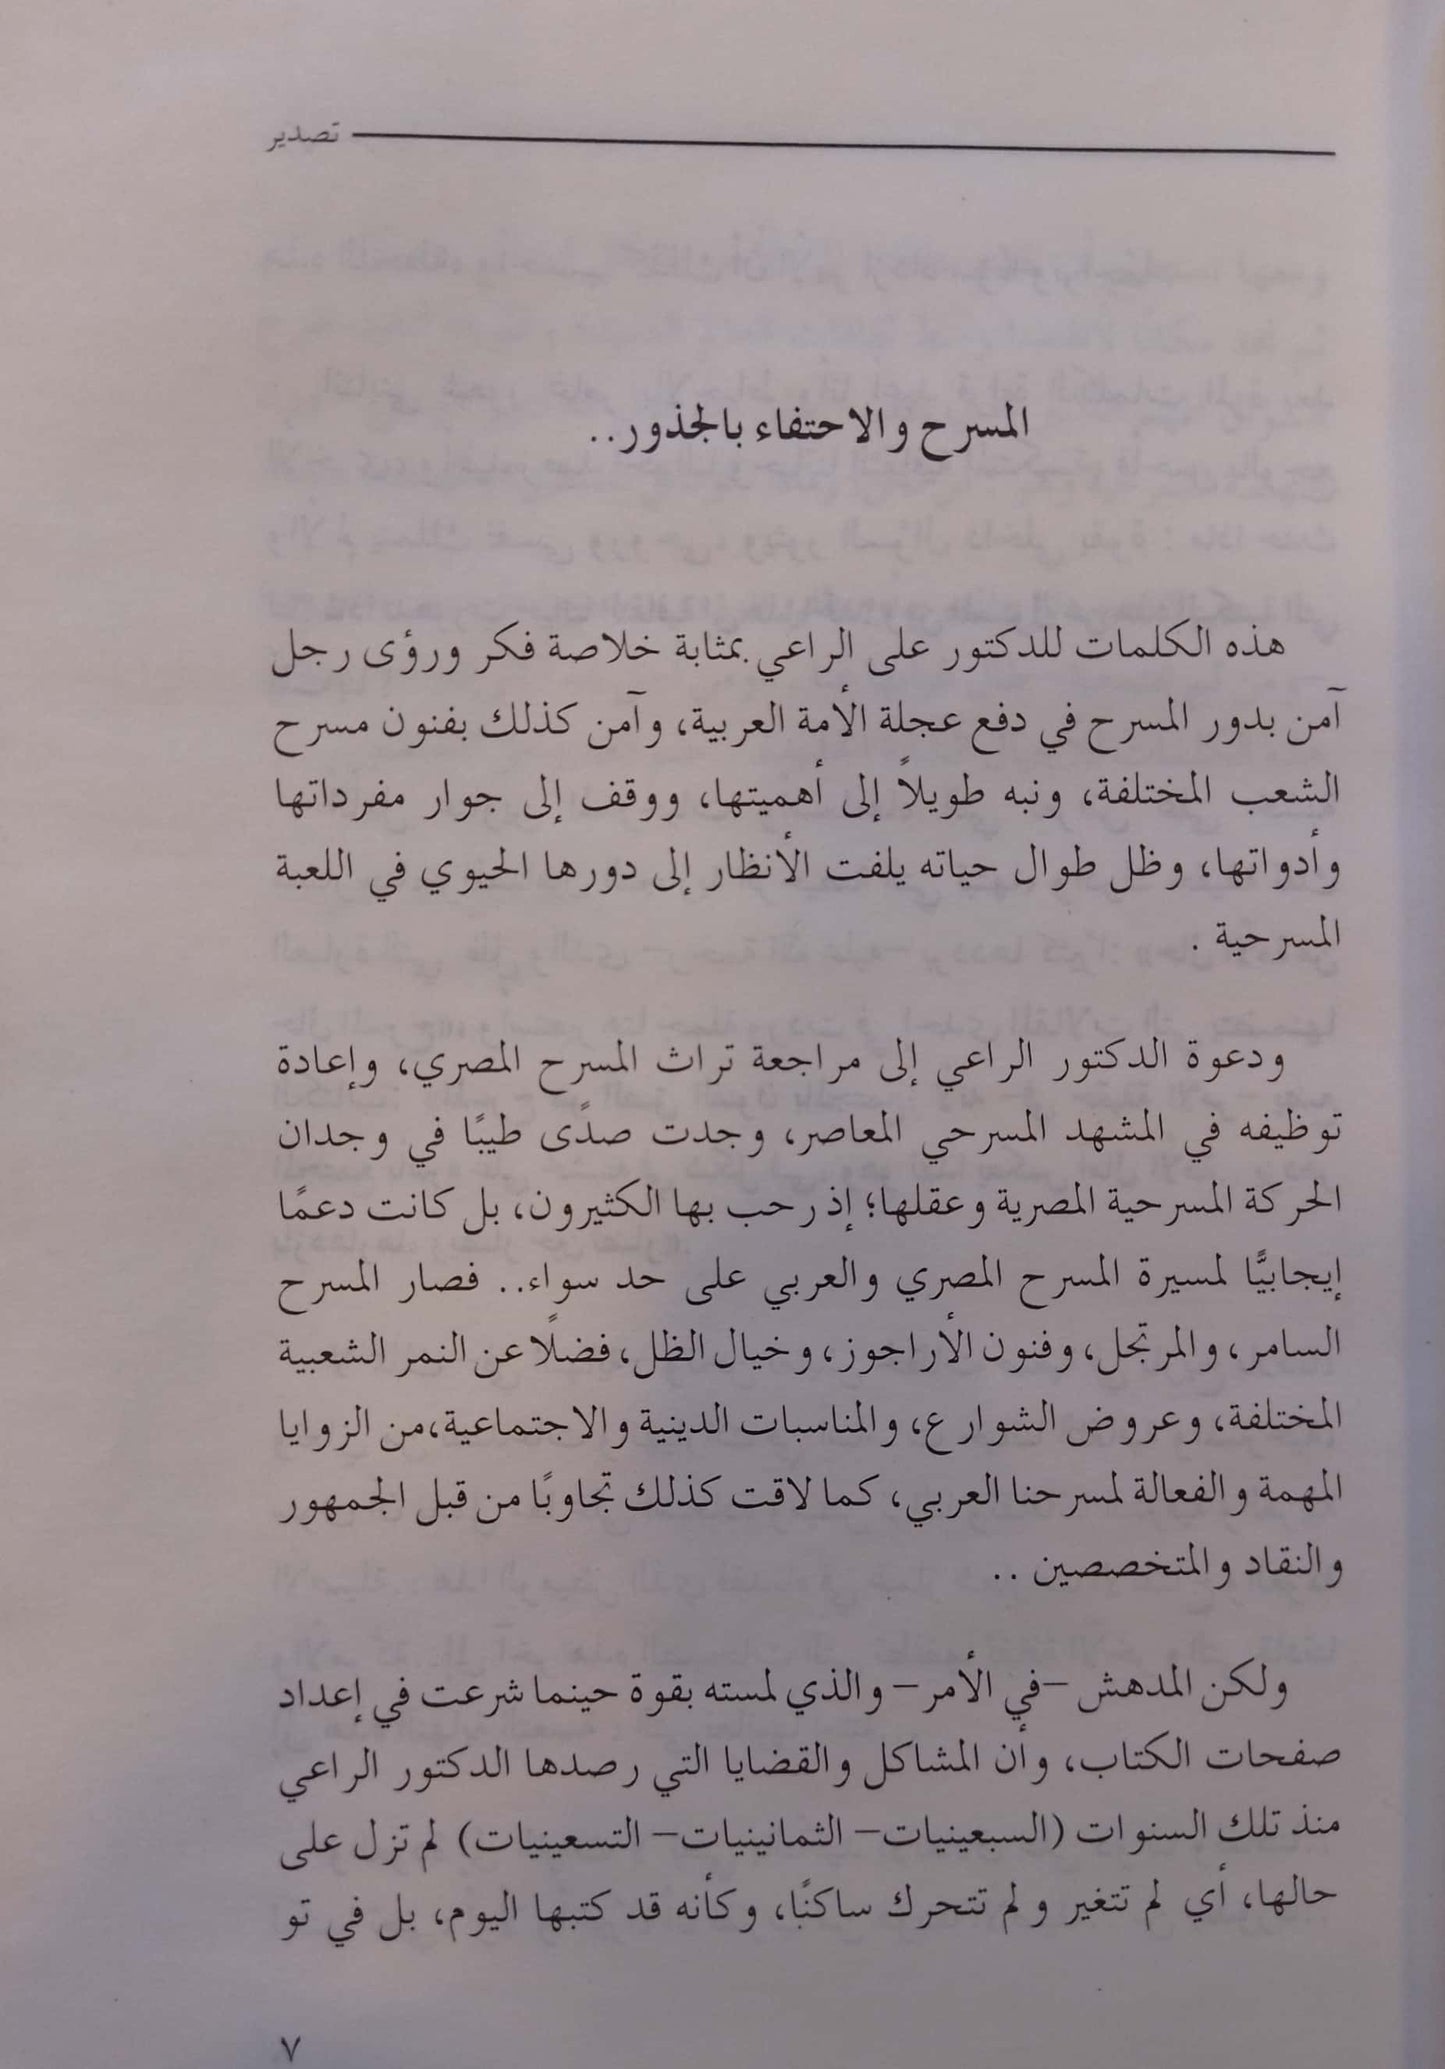 تصدير
المسرح والاحتفاء بالجذور..
هذه الكلمات للدكتور على الراعي بمثابة خلاصة فكر ورؤى رجل
آمن بدور المسرح في دفع عجلة الأمة العربية، وآمن كذلك بفنون مسرح
الشعب المختلفة، ونبه طويلاً إلى أهميتها، ووقف إلى جوار مفرداتها
وأدواتها، وظل طوال حياته يلفت الأنظار إلى دورها الحيوي في اللعبة
المسرحية .
ودعوة الدكتور الراعي إلى مراجعة تراث المسرح المصري، وإعادة
توظيفه في المشهد المسرحي المعاصر، وجدت صدًى طيبًا في وجدان
الحركة المسرحية المصرية وعقلها؛ إذ رحب بها الكثيرون، بل كانت دعمًا
إيجابيًّا لمسيرة المسرح المصري والعربي على حد سواء.. فصار المسرح
السامر، والمرتجل، وفنون الأراجوز، وخيال الظل، فضلًا عن النمر الشعبية
المختلفة، وعروض الشوارع، والمناسبات الدينية والاجتماعية،من الزوايا
المهمة والفعالة لمسرحنا العربي، كما لاقت كذلك تجاوبًا من قبل الجمهور
والنقاد والمتخصصين ..
ولكن المدهش –في الأمر– والذي لمسته بقوة حينما شرعت في إعداد
صفحات الكتاب، وأن المشاكل والقضايا التي رصدها الدكتور الراعي
منذ تلك السنوات (السبعينيات– الثمانينيات– التسعينيات) لم تزل على
حالها، أي لم تتغير ولم تتحرك ساكنًا، وكأنه قد كتبها اليوم، بل في تو
٧